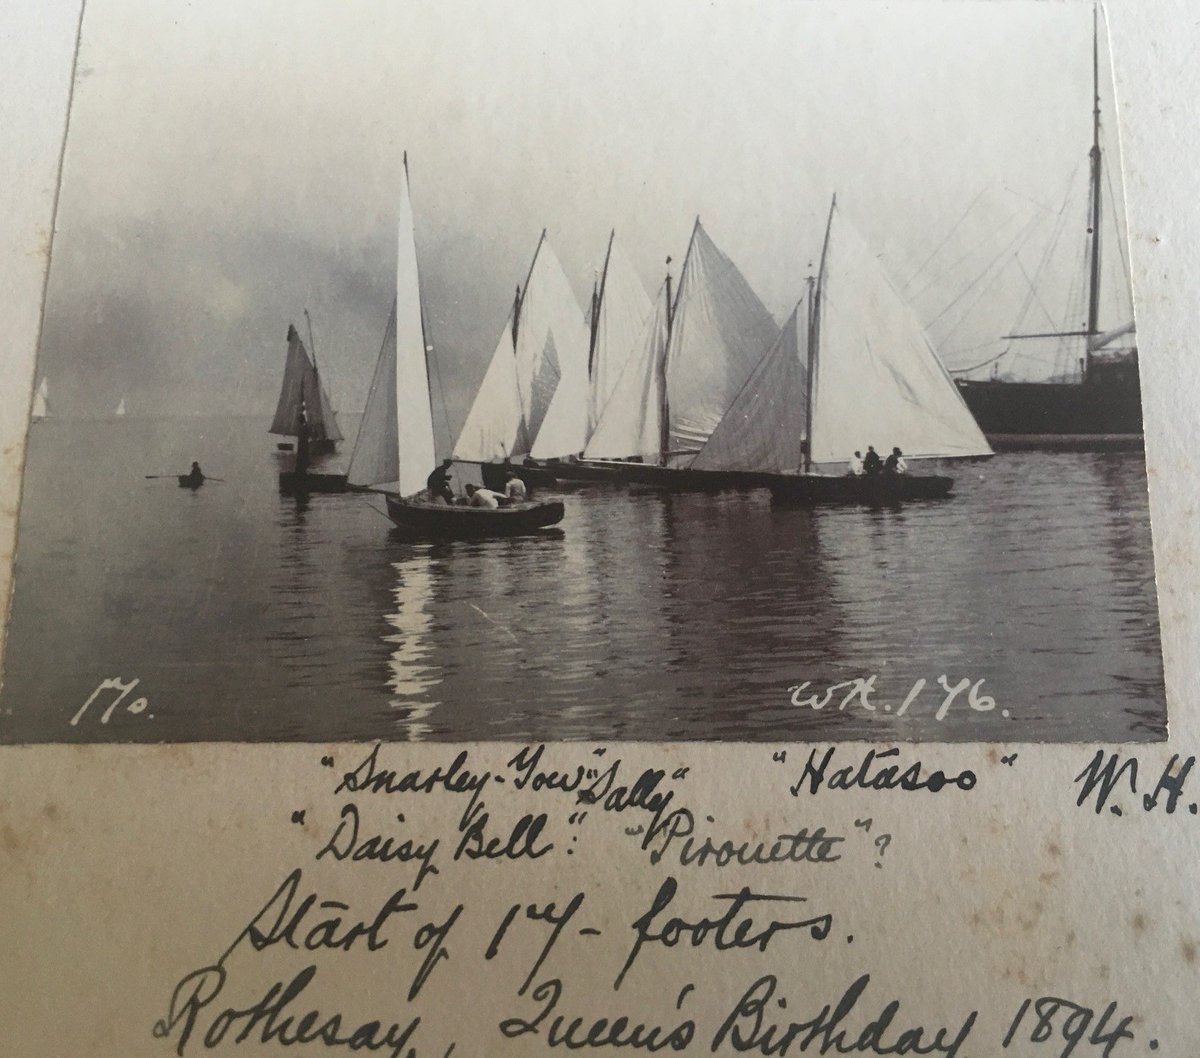 170.
WH. 176.
"Snarley-Yow" "Sally" "Hatasoo" W. H.
"Daisy Bell": "Pirouette"?
Start of 17-footers.
Rothesay, Queen's Birthday 1894.